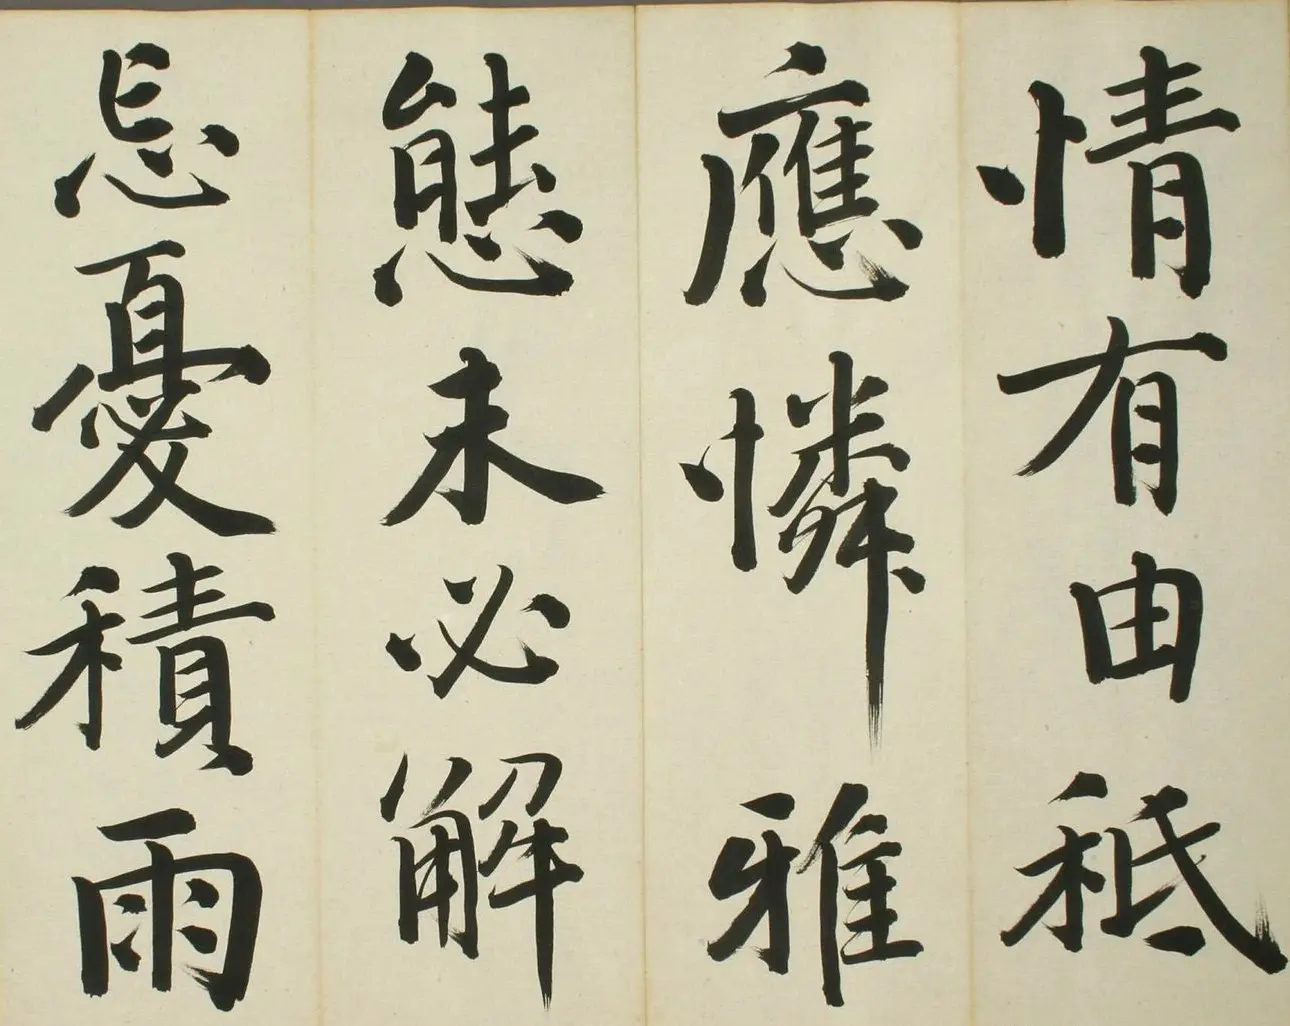 情有由秪
應憐雅
態未必解
忘憂積雨